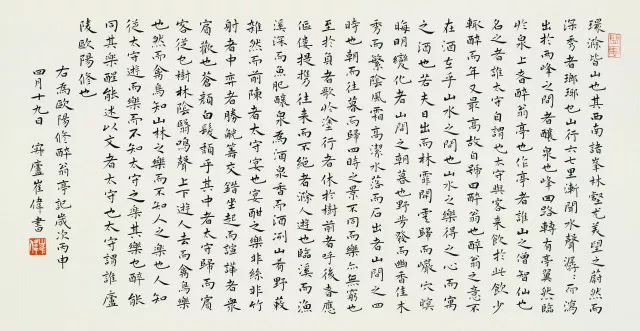 環滁皆山也其西南諸峯林壑尤美望之蔚然而
深秀者瑯琊也山行六七里漸聞水聲潺潺而瀉
出於兩峰之間者釀泉也峰回路轉有亭翼然臨
於泉上者醉翁亭也作亭者誰山之僧智仙也
名之者誰太守自謂也太守與客來飲於此飲少
輒醉而年又最高故自號曰醉翁也醉翁之意不
在酒在乎山水之間也山水之樂得之心而寓
之酒也若夫日出而林霏開雲歸而巖穴暝
晦明變化者山間之朝暮也野芳發而幽香佳木
秀而繁陰風霜高潔水落而石出者山間之四
時也朝而往暮而歸四時之景不同而樂亦無窮也
至於負者歌於塗行者休於樹前者呼後者應
傴僂提攜往來而不絕者滁人遊也臨溪而漁
溪深而魚肥釀泉為酒泉香而酒洌山肴野蔌
雜然而前陳者太守宴也宴酣之樂非絲非竹
射者中弈者勝觥籌交錯坐起而諠譁者眾
賓歡也蒼顏白髮頹乎其中者太守歸而賓
客從也樹林陰翳鳴聲上下遊人去而禽鳥樂
也然而禽鳥知山林之樂而不知人之樂也人知
從太守遊而樂而不知太守之樂其樂也醉能
同其樂醒能述以文者太守也太守謂誰廬
陵歐陽修也
右為歐陽修醉翁亭記歲次丙申
四月十九日 廬崔偉書